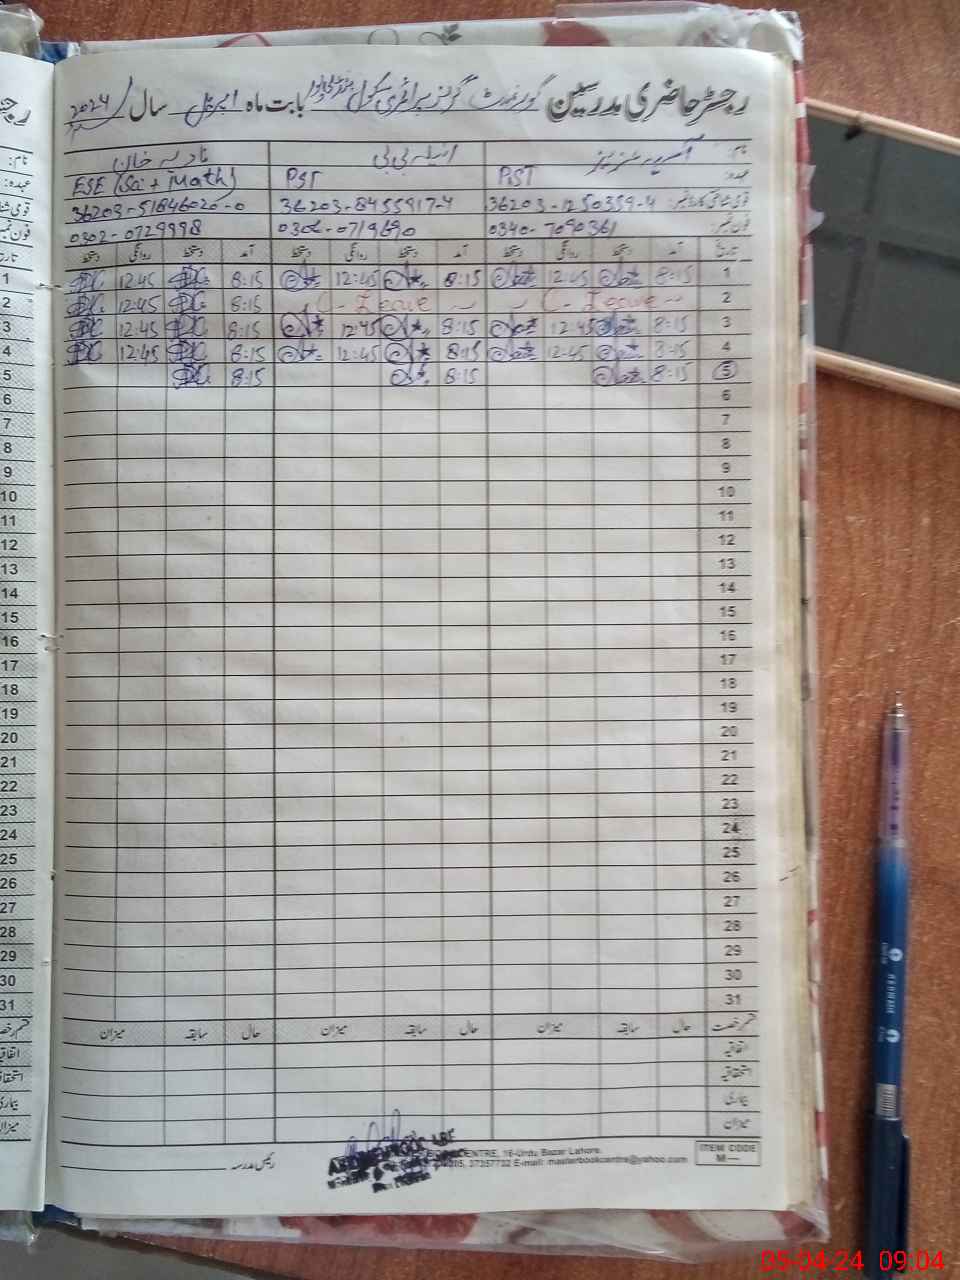 رجسٹر حاضری مدرسین گورنمنٹ گرلز پرائمری سکول بابت ماہ اپریل سال 2024
نام: آسیہ انیلہ بی بی نادیہ خان
عہدہ: PST PST ESE (Sci + Math)
قومی شناختی کارڈ نمبر: 36203-1250359-4 36203-8455917-4 36203-5184602-0
فون نمبر: 0340-7090361 0306-0719690 0302-0729998
تاریخ آمد دستخط روانگی دستخط آمد دستخط روانگی دستخط آمد دستخط روانگی دستخط
1 8:15 12:45 8:15 12:45 8:15 12:45
2 C-Leave C-Leave 8:15 12:45
3 8:15 12:45 8:15 12:45 8:15 12:45
4 8:15 12:45 8:15 12:45 8:15 12:45
5 8:15 8:15 8:15
6
7
8
9
10
11
12
13
14
15
16
17
18
19
20
21
22
23
24
25
26
27
28
29
30
31
قسم رخصت حال سابقہ میزان حال سابقہ میزان حال سابقہ میزان
اتفاقیہ
استحقاقیہ
بیماری
میزان
رئیس مدرسہ
CENTRE, 16-Urdu Bazar Lahore.
37357732 E-mail: masterbookcentre@yahoo.com
ITEM CODE
M—
رجسٹر
نام:
عہدہ:
1
2
3
4
5
6
7
8
9
10
11
12
13
14
15
16
17
18
19
20
21
22
23
24
25
26
27
28
29
30
31
بیماری
میزان
05-04-24 09:04